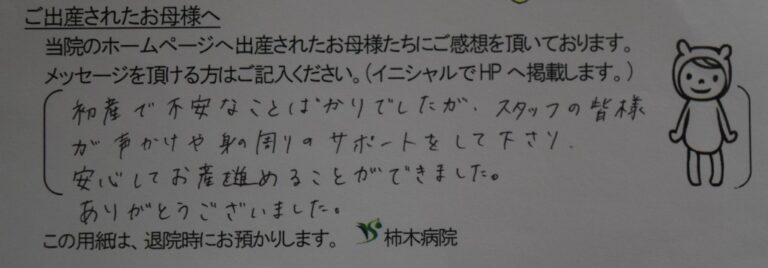 ご出産されたお母様へ
当院のホームページへ出産されたお母様たちにご感想を頂いております。
メッセージを頂ける方はご記入ください。（イニシャルでHPへ掲載します。）
初産で不安なことばかりでしたが、スタッフの皆様
が声かけや身の周りのサポートをして下さり、
安心してお産進めることができました。
ありがとうございました。
この用紙は、退院時にお預かりします。 柿木病院